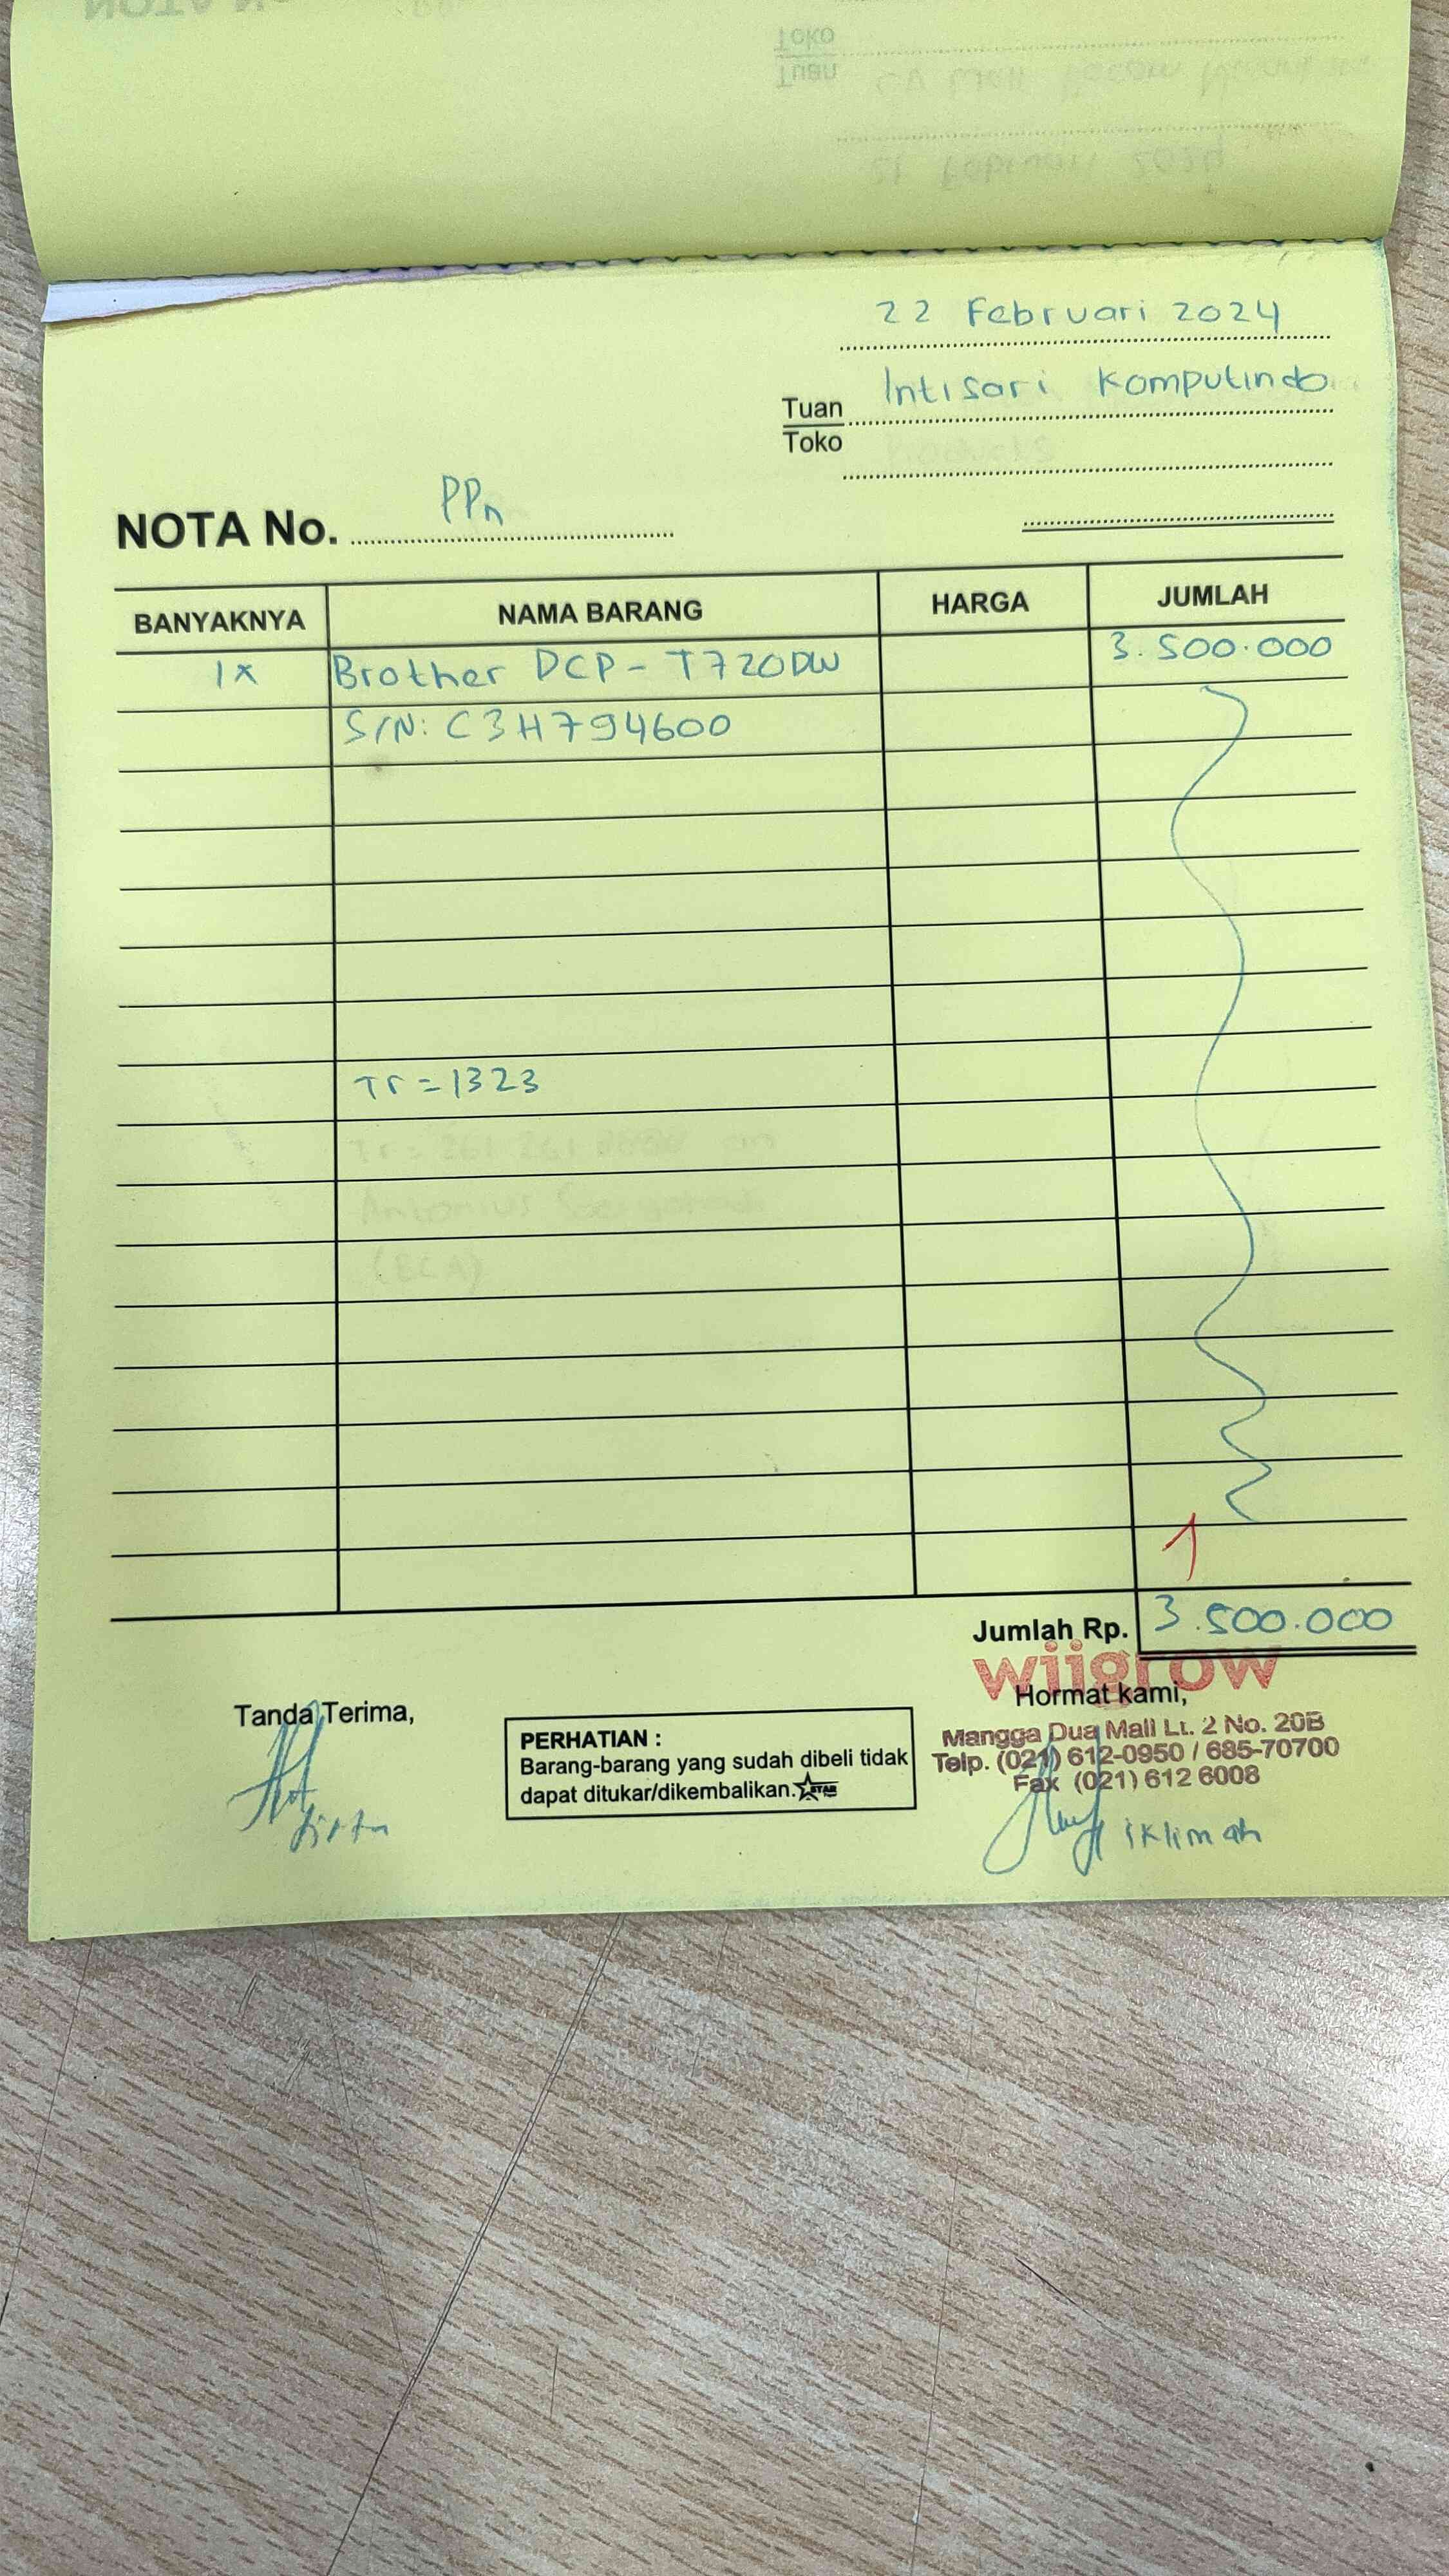 22 Februari 2024
Tuan Intisari Komputindo
Toko
NOTA No. PPn
BANYAKNYA NAMA BARANG HARGA JUMLAH
1x Brother DCP-T720DW 3.500.000
S/N: C3H794600
Tr = 1323
Jumlah Rp. 3.500.000
wiigrow
Tanda Terima, Hormat kami,
PERHATIAN :
Barang-barang yang sudah dibeli tidak
dapat ditukar/dikembalikan. STAR
Mangga Dua Mall Lt. 2 No. 20B
Telp. (021) 612-0950 / 685-70700
Fax (021) 612 6008
iklimah